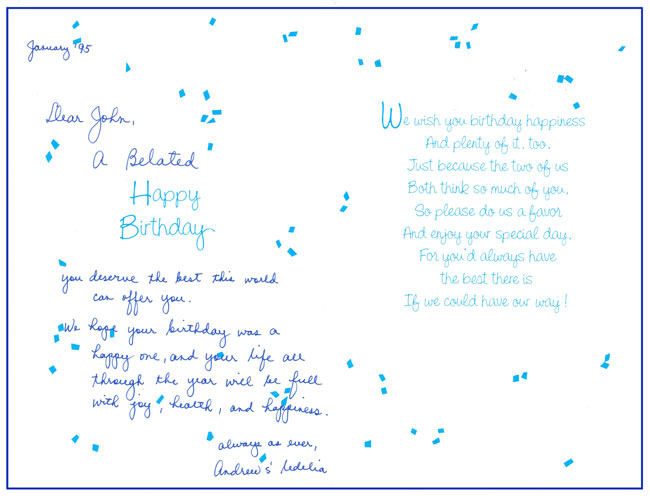 January '95
Dear John,
A Belated
Happy
Birthday
you deserve the best this world
can offer you.
We hope your birthday was a
happy one, and your life all
through the year will be full
with joy, health, and happiness.
always as ever,
Andrew &
We wish you birthday happiness
And plenty of it, too.
Just because the two of us
Both think so much of you.
So please do us a favor
And enjoy your special day,
For you'd always have
the best there is
If we could have our way!